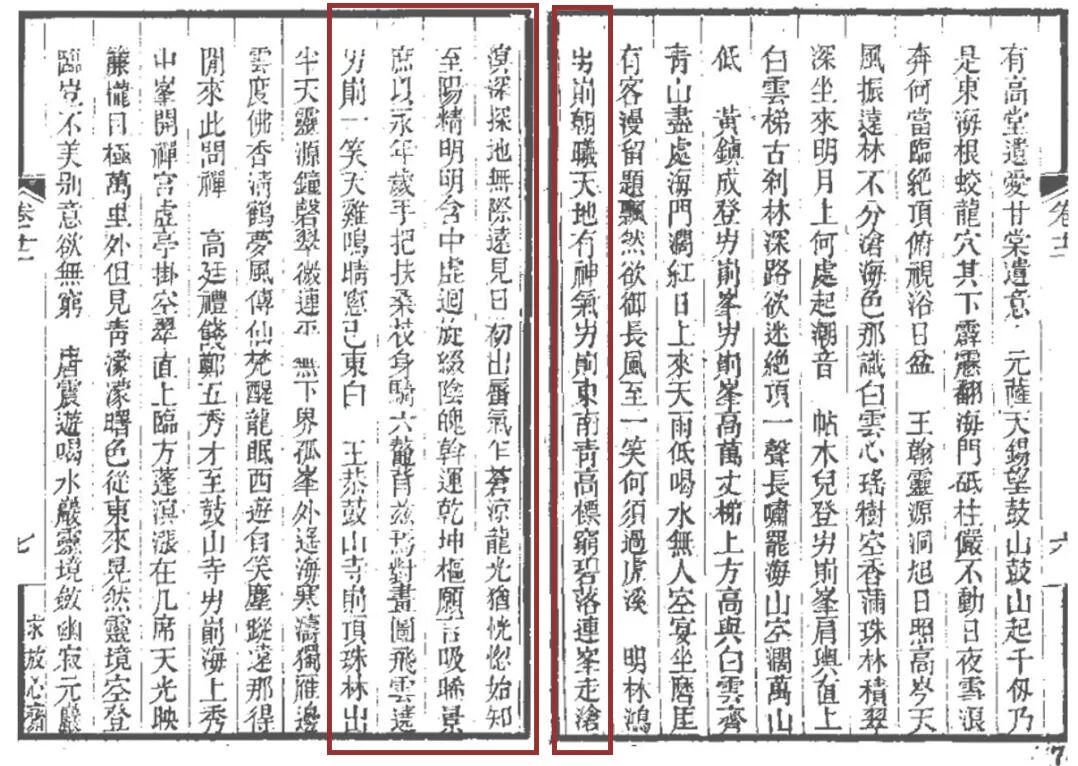 有高堂遺愛甘棠遺意 元薩天錫望鼓山鼓山起千仭乃
是東海根蛟龍穴其下霹靂翻海門砥柱儼不動日夜雪浪
奔何當臨絶頂俯視浴日盆 王翰靈源洞旭日照高岑天
風振遠林不分滄海色那識白雲心瑤樹空香滿珠林積翠
深坐來明月上何處起潮音 帖木兒登屴崱峯肩輿直上
白雲梯古刹林深路欲迷絶頂一聲長嘯罷海山空濶萬山
低 黃鎮成登屴崱峯屴崱峯高萬丈梯上方高與白雲齊
青山盡處海門濶紅日上來天雨低喝水無人空宴坐磨厓
有客漫留題飄然欲御長風至一笑何須過虎溪 明林鴻
屴崱朝曦天地有神氣屴崱東南靑高標窮碧落連峯走滄
溟深探地無際遠見日初出蜃氣乍蒼涼龍光猶恍惚始知
至陽精明明含中虛迴旋綴陰魄斡運乾坤樞願言吸晞景
庶以永年歲手把扶桑花身騎六鼇背茲焉對畫圖飛雲遶
屴崱一笑天雞鳴晴窻已東白 王恭鼓山寺崱頂珠林出
半天靈源鐘磬翠微連 無下界孤峯外遙海寒濤獨雁邊
雲度佛香淸鶴夢風傳仙梵醒龍眠西遊自笑塵蹤遠那得
閒來此問禪 高廷禮餞鄭五秀才至鼓山寺屴崱海上秀
中峯開禪宮虛亭掛空翠直上臨方蓬溟漲在几席天光映
簾櫳目極萬里外但見靑濛濛曙色從東來見然靈境空登
臨豈不美别意欲無窮 唐震遊喝水巖靈境斂幽寂元巖
七